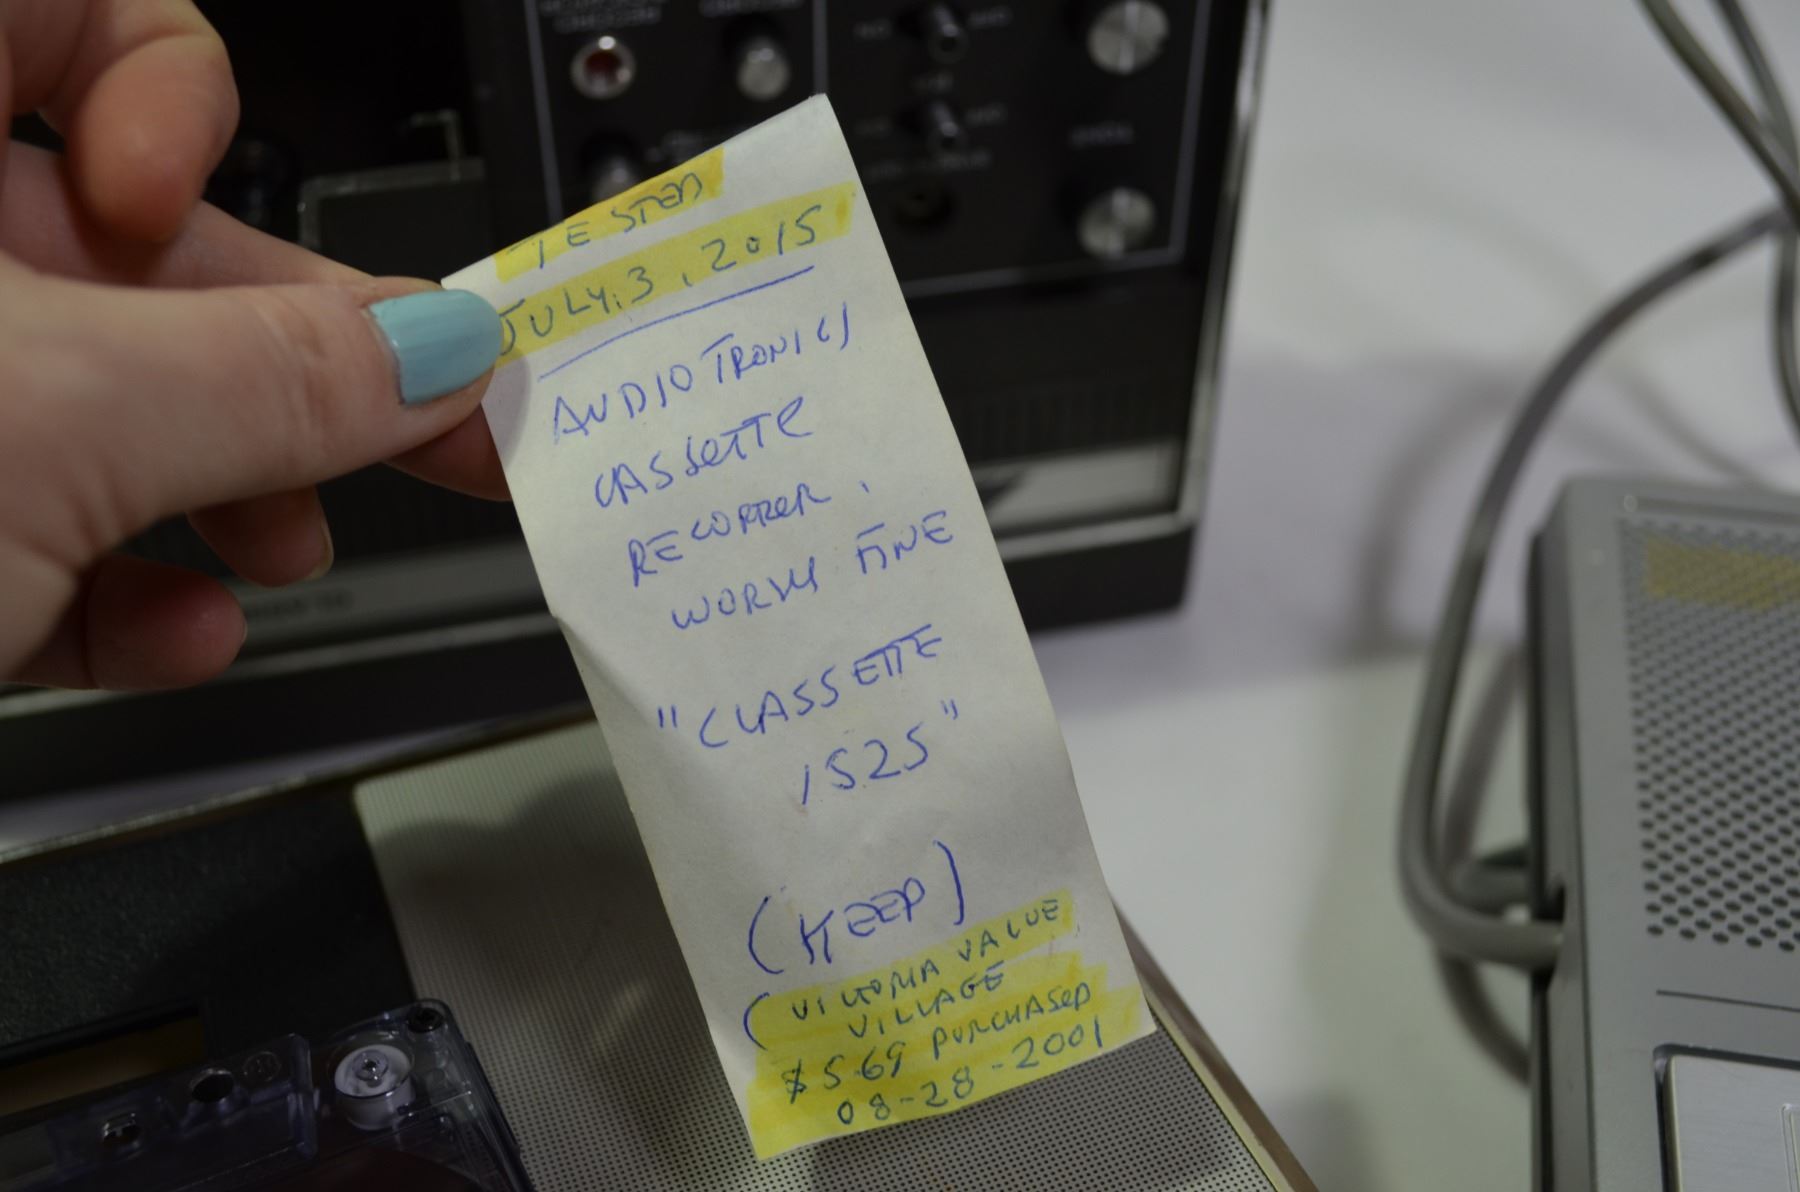 TESTED
JULY.3, 2015
AUDIOTRONICS
CASSETTE
RECORDER.
WORKS FINE
"CLASSETTE
1525"
(KEEP)
(VICTORIA VALUE
VILLAGE
$5.69 PURCHASED
08-28-2001